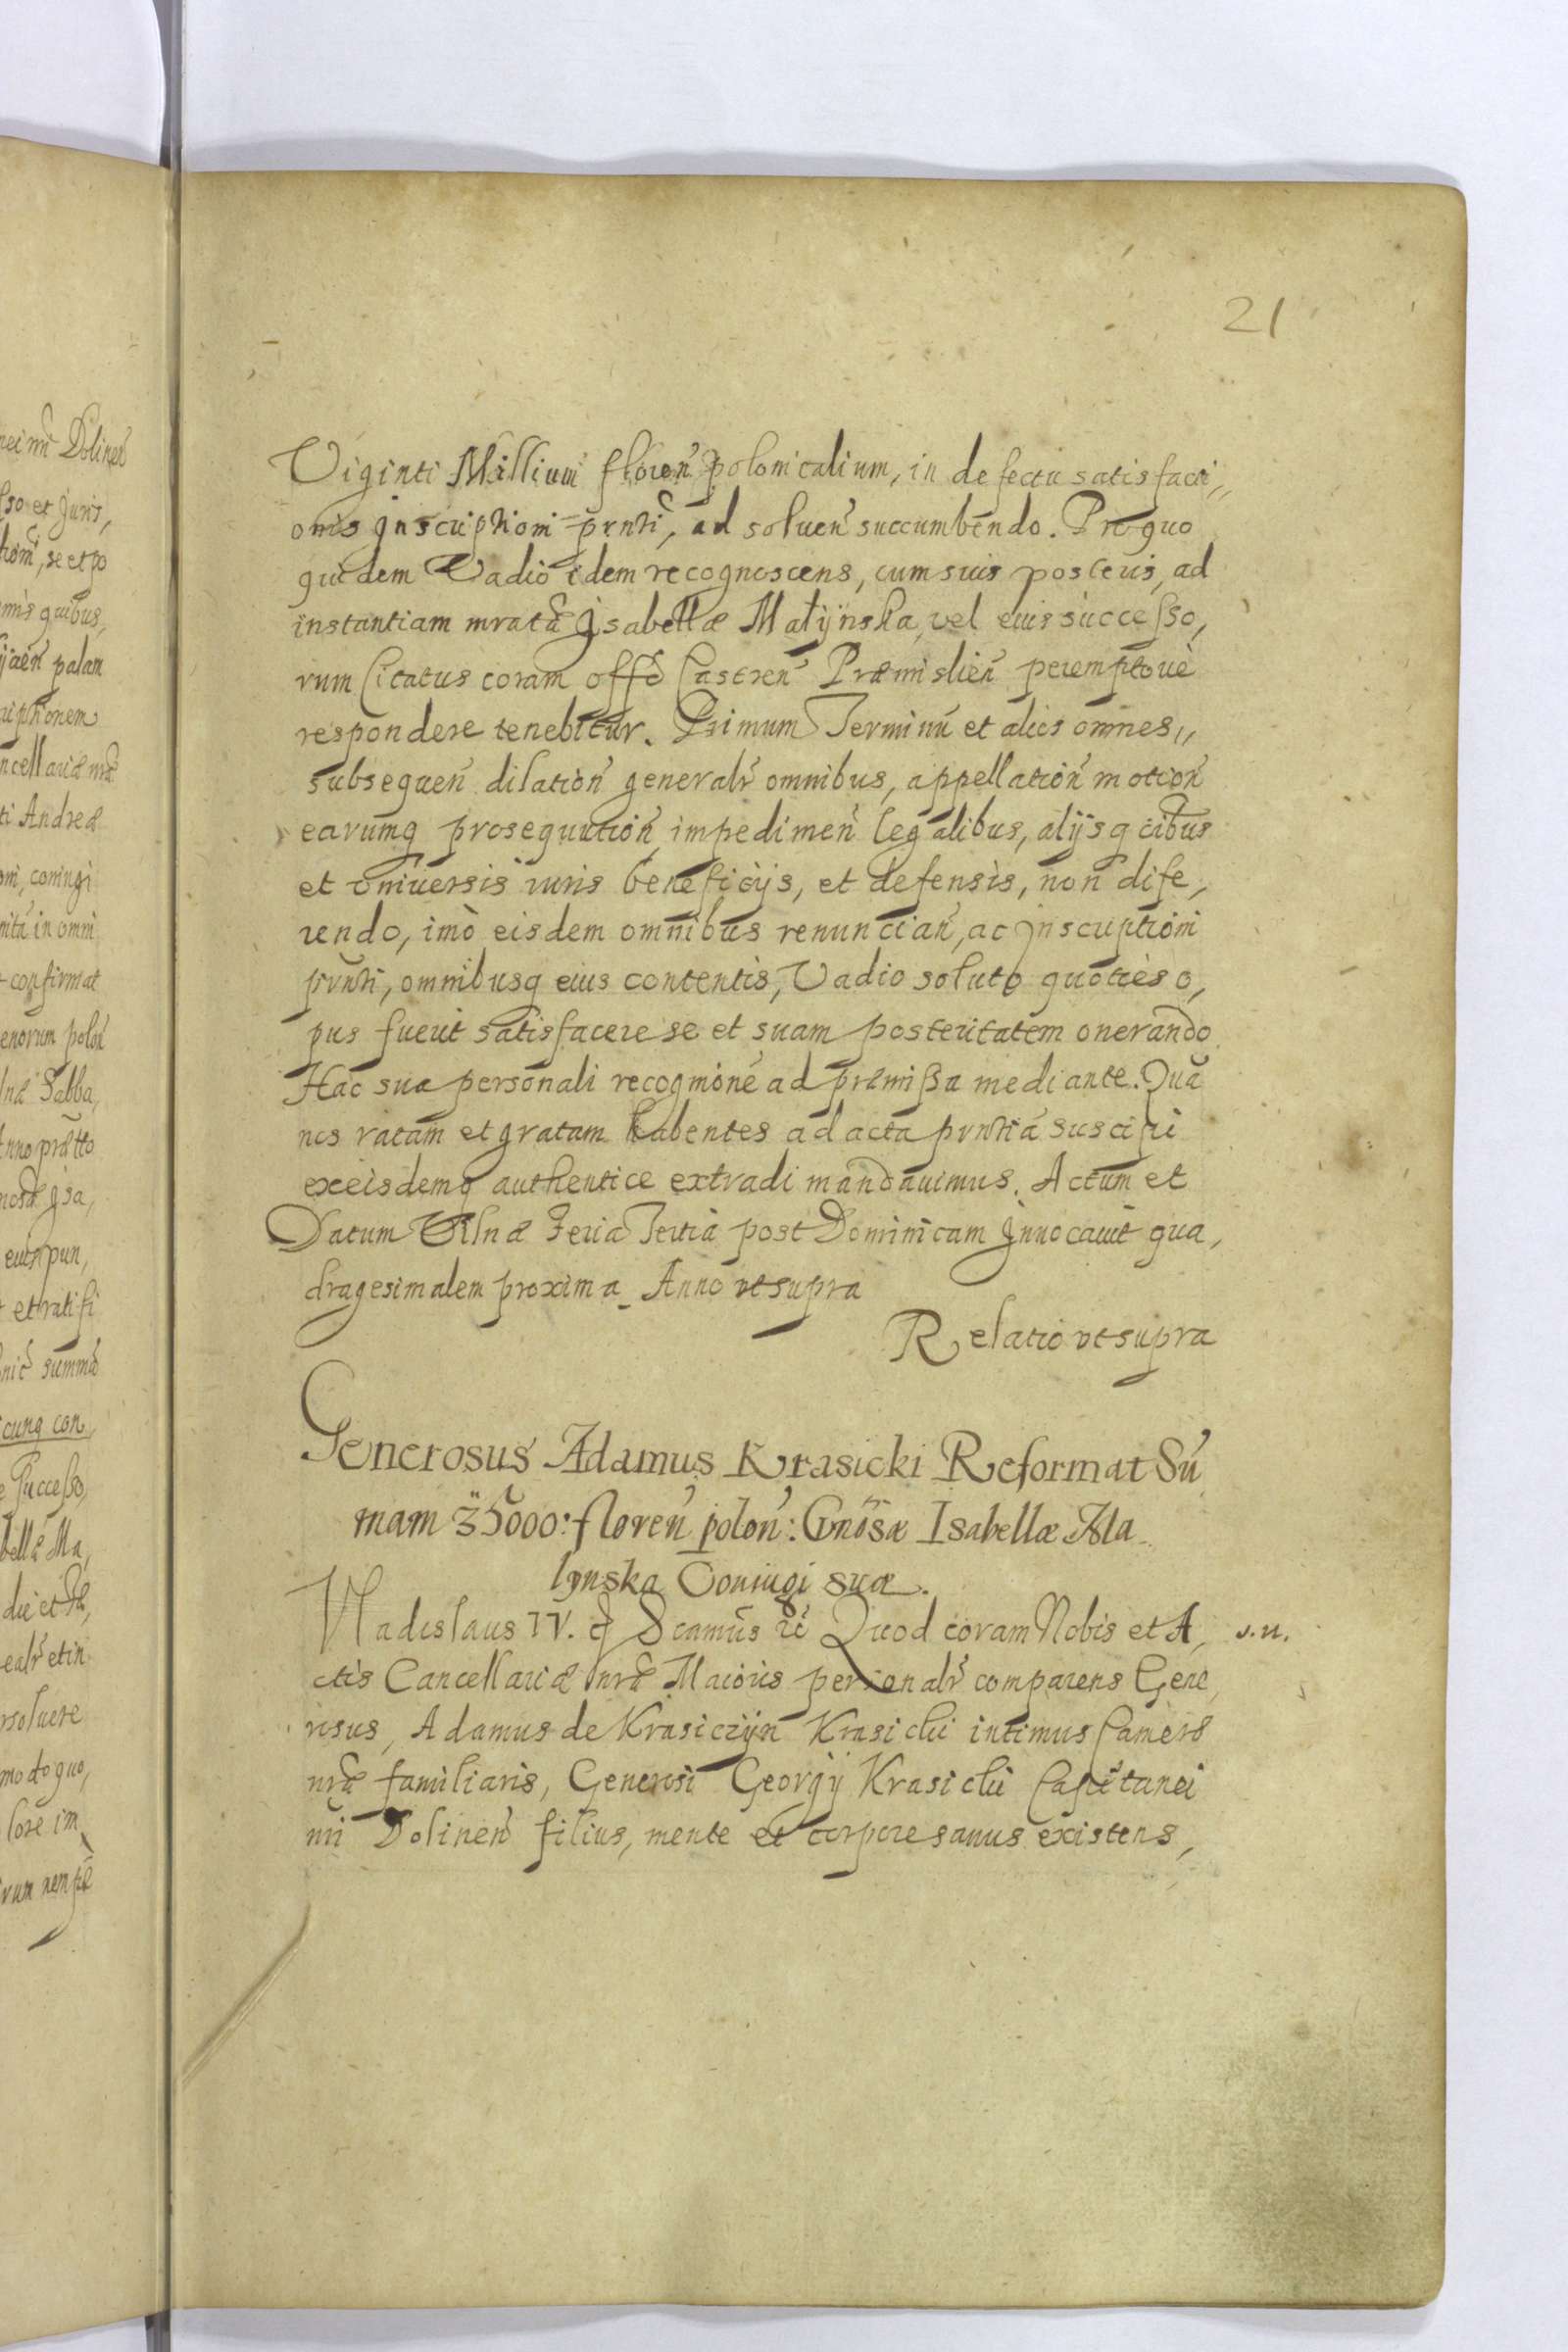 21
Viginti Millium floren polonicalium, in defectu satisfacti,,
onis Inscriptioni prnti, ad soluen succumbendo. Pro quo
quidem Vadio idem recognoscens, cum suis posteris, ad
instantiam mratæ Isabellæ Małÿnska, vel eius successo,
rum Citatus coram offo Castren Præmislien peremptoriè
respondere tenebitur. Primum Terminū et alios omnes,,
subsequen dilation generalr omnibus, appellation motion
earumq prosequution, impedimen legalibus, alijsq cibus
et vniuersis iuris beneficijs, et defensis, non dife,
rendo, imò eisdem omnibus renuncian, ac Inscriptioni
prnti, omnibusq eius contentis, Vadio soluto quoties o,
pus fuerit satisfacere se et suam posteritatem onerando
Hac sua personali recognione ad præmißa mediante. Quā
nos ratam et gratam habentes ad acta prntia suscipi
exeisdemq authentice extradi mandauimus. Actum et
Datum Vilnæ Feria Tertia post Dominicam Inuocauit qua,
dragesimalem proxima Anno vt supra
Relatio vt supra
Generosus Adamus Krasicki Reformat Sū
mam 35000: floren polon: Gnosæ Isabellæ Ma
lynska Coniugi suæ.
Vladislaus IV. & Scamus &c Quod coram Nobis et A,
ctis Cancellariæ nræ Maioris personalr comparens Gene,
rosus, Adamus de Krasiczÿn Krasicki intimus Cameræ
nræ familiaris, Generosi Georgÿ Krasicki Capitanei
nri Dolinen filius, mente et corpore sanus existens,
nei nri Dolinen
sso et Juris,
se et po
quibus,
palam
riptionem
ncellariæ nræ
ti Andreæ
coniugi
in omni
confirmat
enorum polon
lnæ Sabba,
Anno prætto
Isa,
eius pun,
et ratifi
summæ
cunq con,
Successo,
bellæ Ma,
die et
ealr et in
rsoluere
modo quo,
lore im
rum nempe